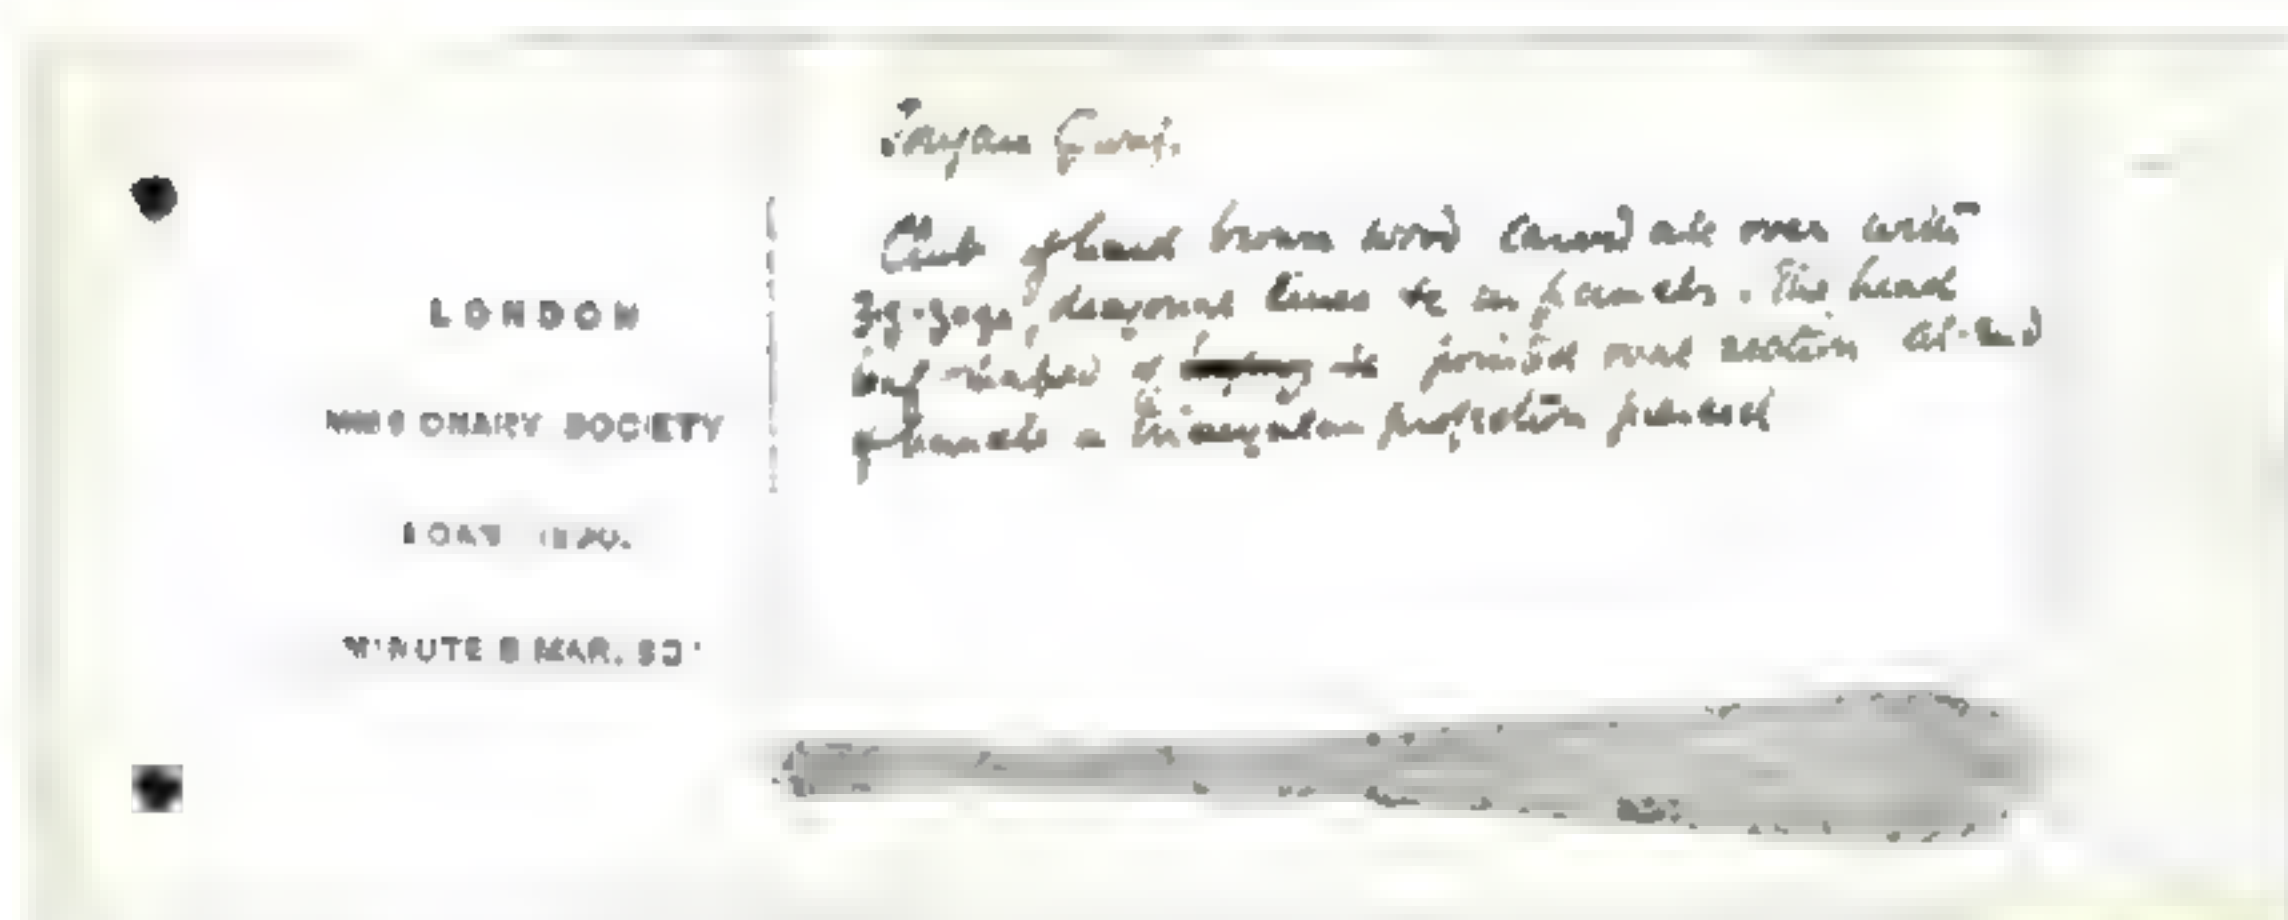 LONDON
MISSIONARY SOCIETY
LOAN 1890.
MINUTE 8 MAR. 90
Club of hard brown wood carved all over with
zig-zags, diagonal lines &c in panels. The head
is pointed oval section at end
of handle a triangular projection pierced